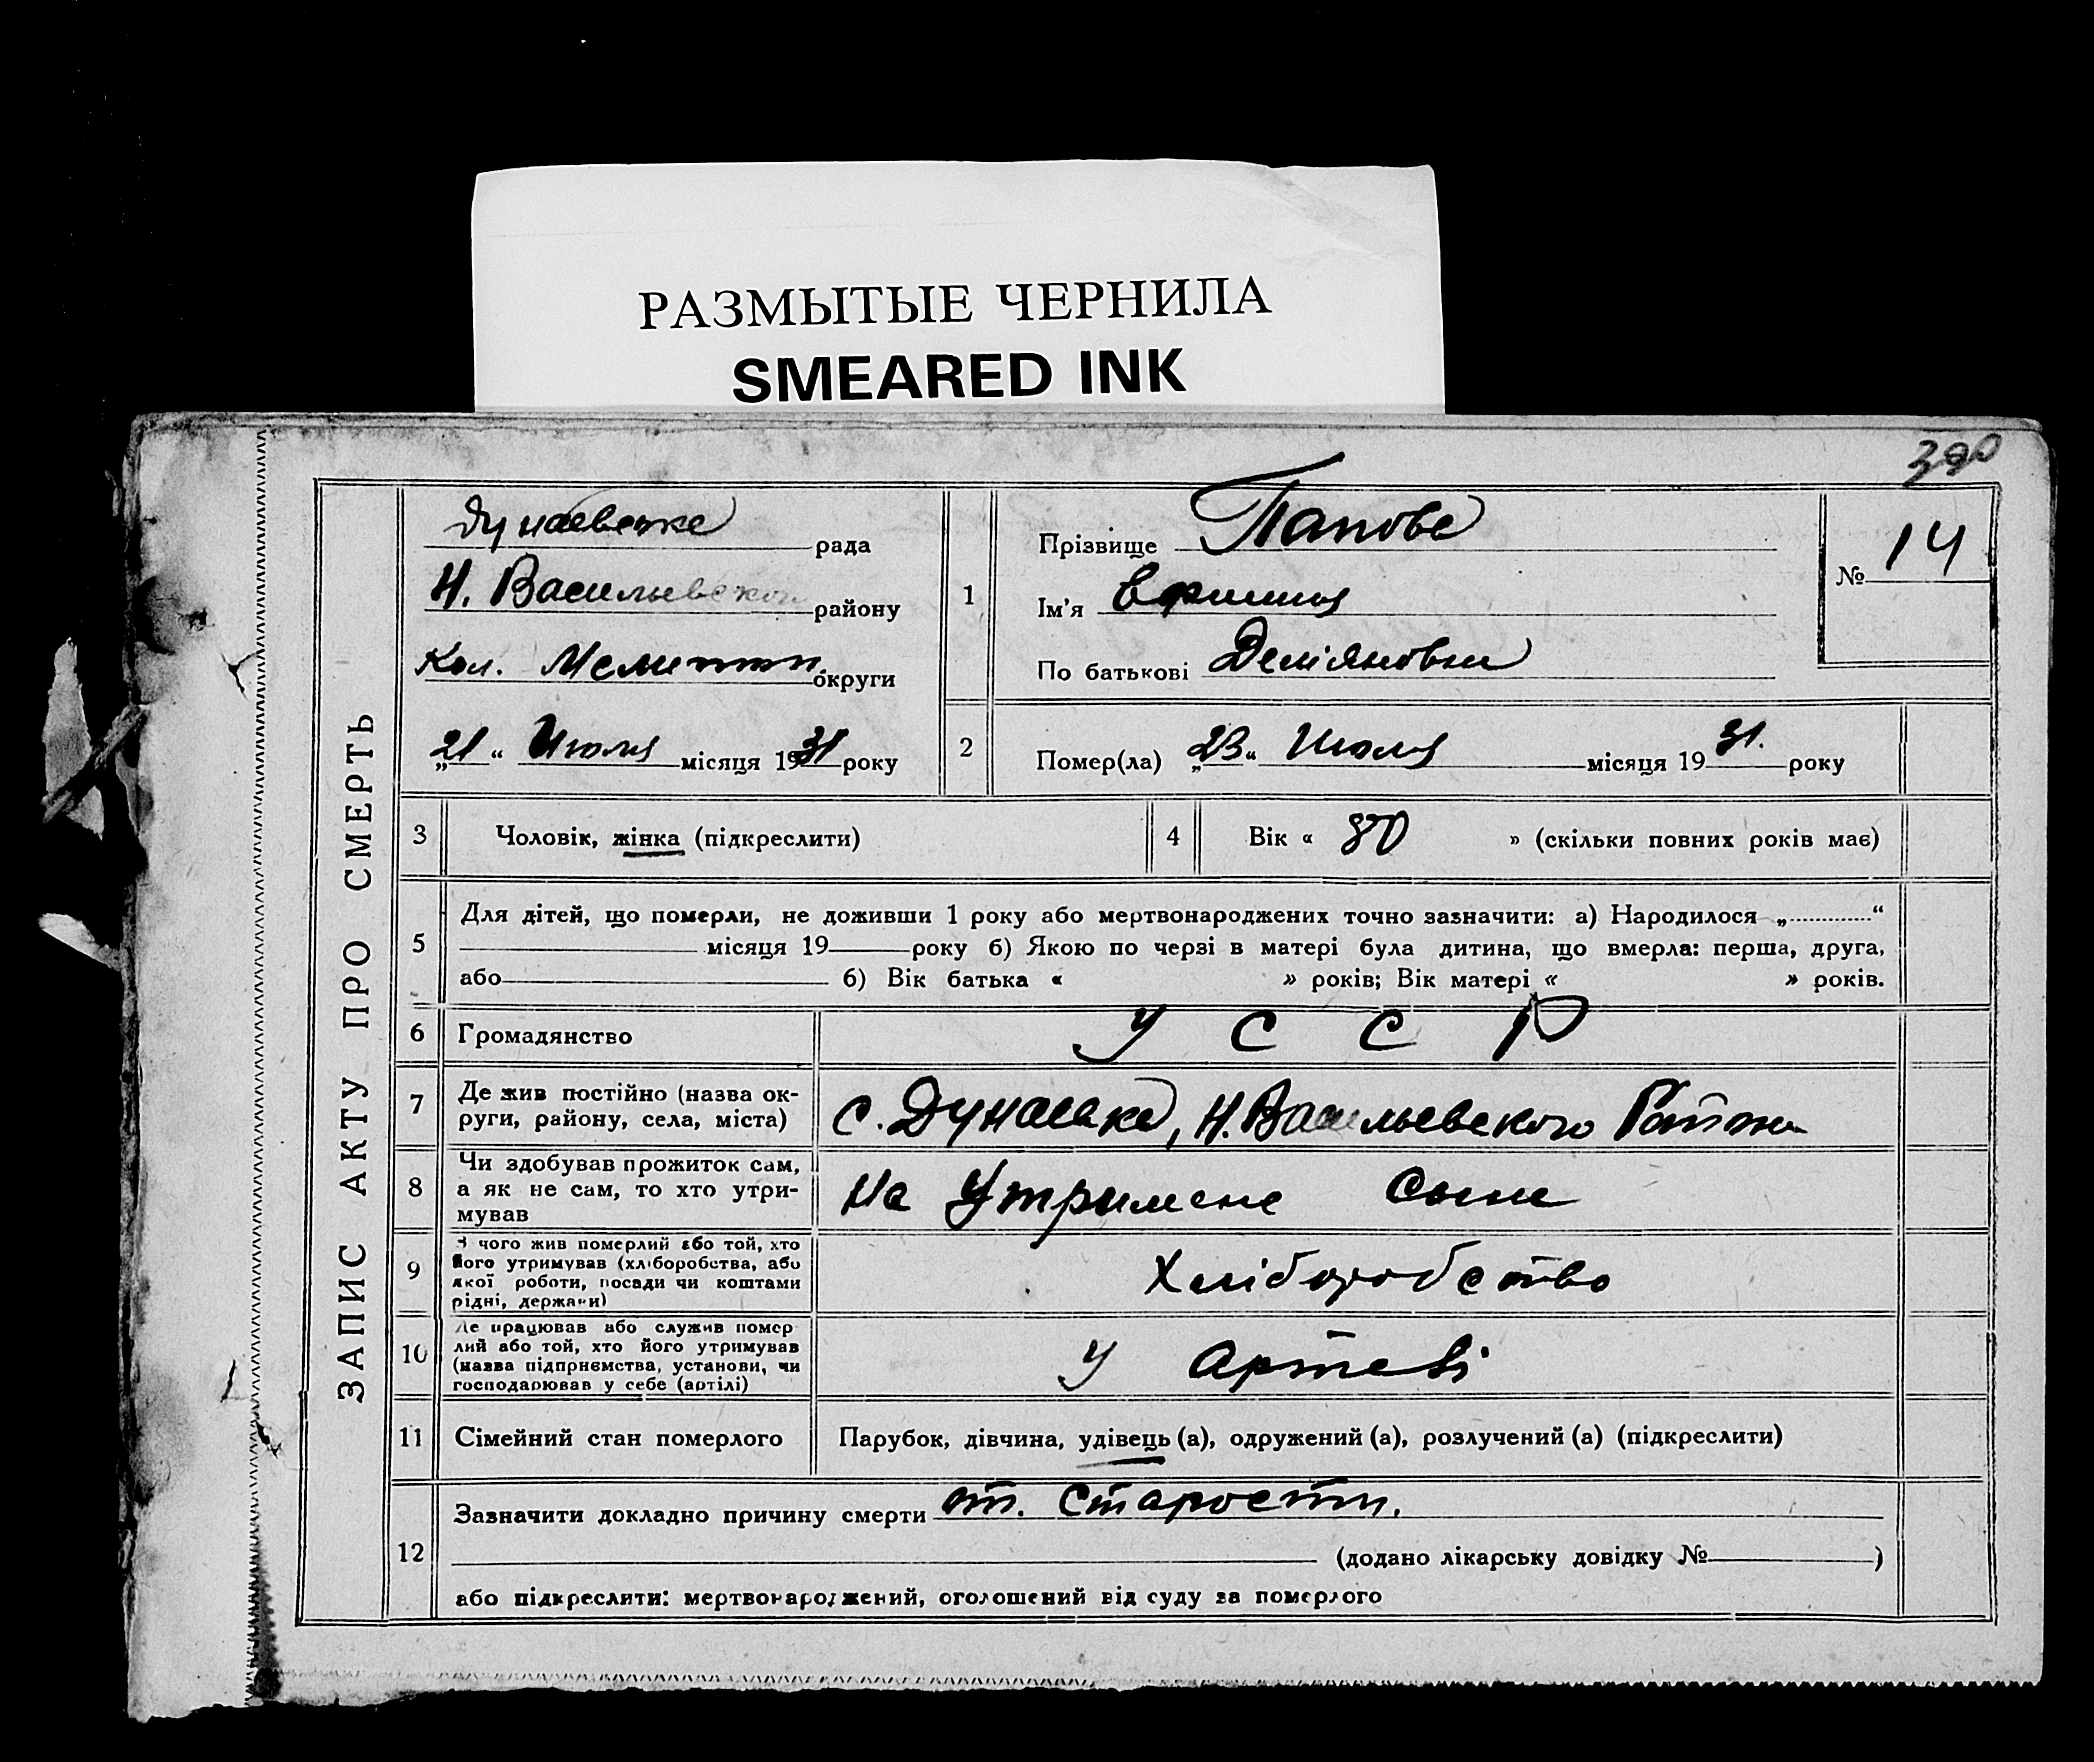 РАЗМЫТЫЕ ЧЕРНИЛА
SMEARED INK
390
ЗАПИС АКТУ ПРО СМЕРТЬ
Дунаевська рада
Н. Васильевского району
Кол. Мелитоп. округи
„21“ Июля місяця 1931 року
1
Прізвище Папова
Ім'я
По батькові Деміяновна
№ 14
2
Помер(ла) „23“ Июля місяця 1931. року
3 Чоловік, жінка (підкреслити)
4 Вік « 80 » (скільки повних років має)
5
Для дітей, що померли, не доживши 1 року або мертвонароджених точно зазначити: а) Народилося „ “
місяця 19 року б) Якою по черзі в матері була дитина, що вмерла: перша, друга,
або б) Вік батька « » років; Вік матері « » років.
6 Громадянство У С С Р
7 Де жив постійно (назва ок-
руги, району, села, міста)
с. Дунаевка, Н. Васильевского
8 Чи здобував прожиток сам,
а як не сам, то хто утри-
мував
на Утримане сына
9 З чого жив померлий або той, хто
його утримував (хліборобства, або
якої роботи, посади чи коштами
рідні, держави)
Хліборобство
10 Де працював або служив помер
лий або той, хто його утримував
(назва підприємства, установи, чи
господарював у себе (артілі)
У Артелі
11 Сімейний стан померлого Парубок, дівчина, удівець (а), одружений (а), розлучений (а) (підкреслити)
12
Зазначити докладно причину смерти от. Старости.
(додано лікарську довідку № )
або підкреслити: мертвонароджений, оголошений від суду за померлого